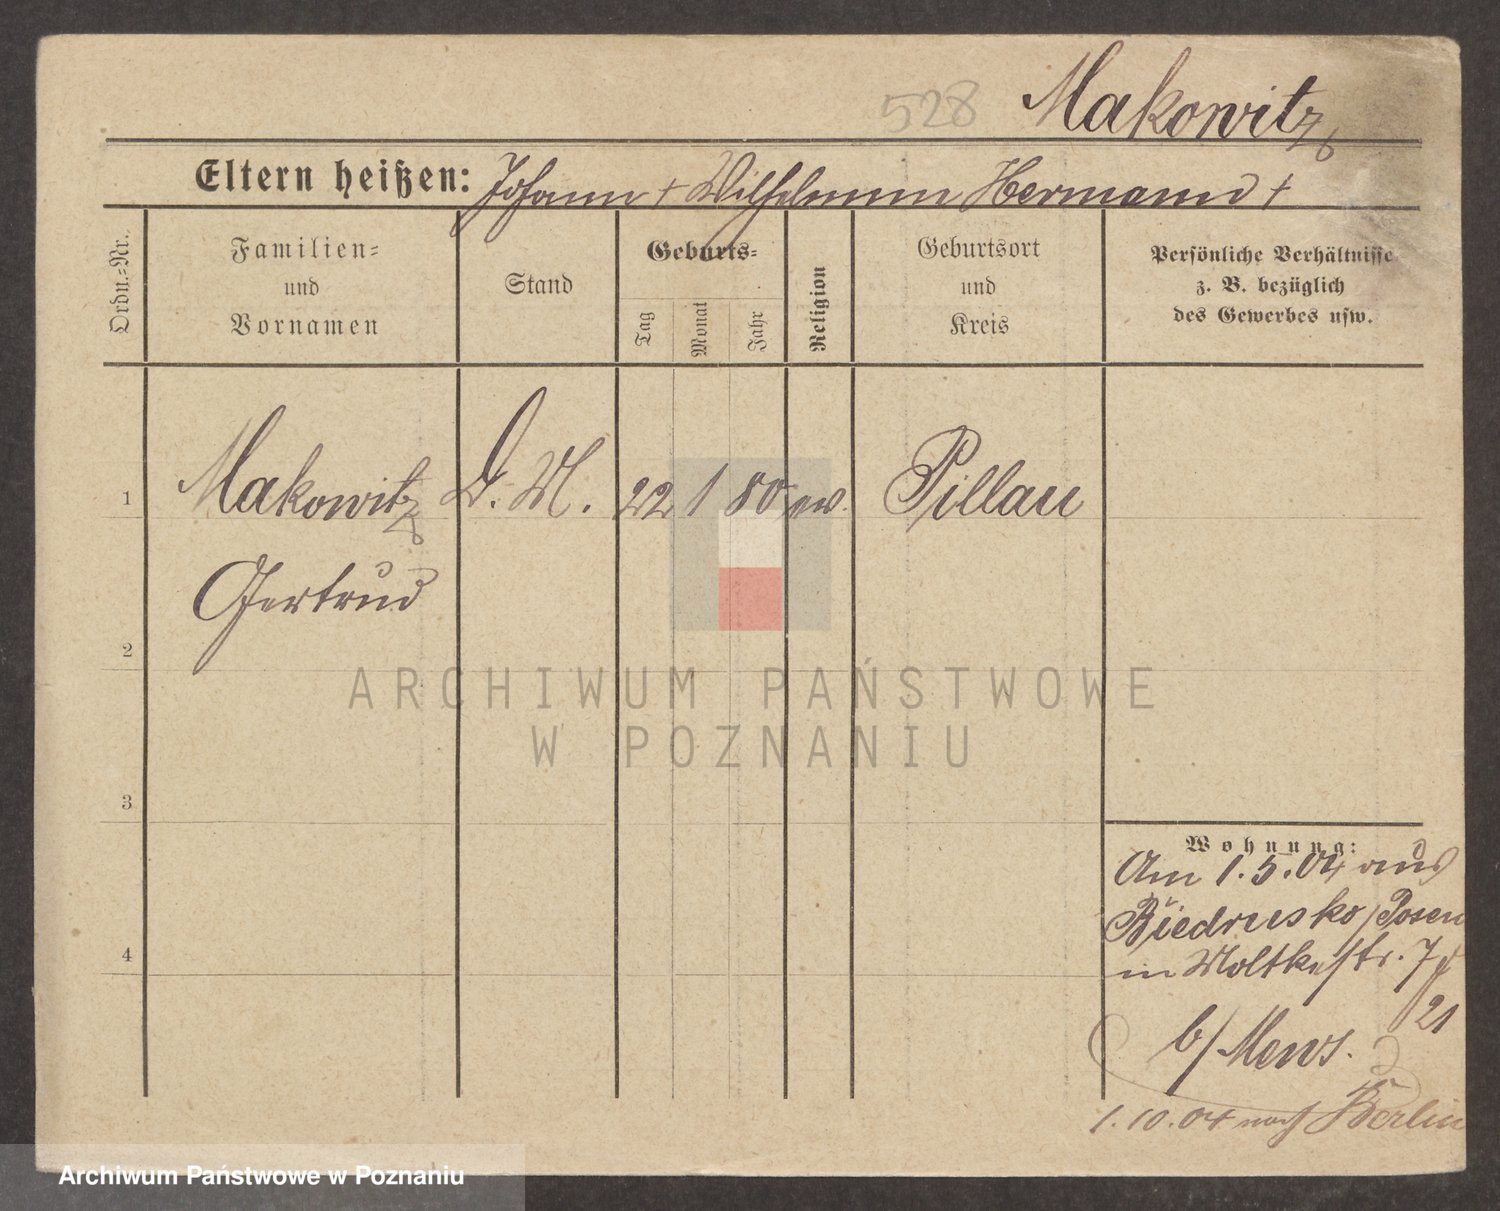 528 Makowitz
Eltern heißen: Johann † Wilhelmine Hermann †
Ordn.-Nr.
Familien-
und
Vornamen
Stand
Geburts-
Tag
Monat
Jahr
Religion
Geburtsort
und
Kreis
Persönliche Verhältnisse
z. B. bezüglich
des Gewerbes usw.
1 Makowitz D. M. 22 1 80 ev. Pillau
Gertrud
2
3
4
Wohnung:
Am 1.5.04 aus
Biedrusko/Posen
in Moltkestr. 7
21
b/ Mews.
1.10.04 nach Berlin
ARCHIWUM PAŃSTWOWE
W POZNANIU
Archiwum Państwowe w Poznaniu